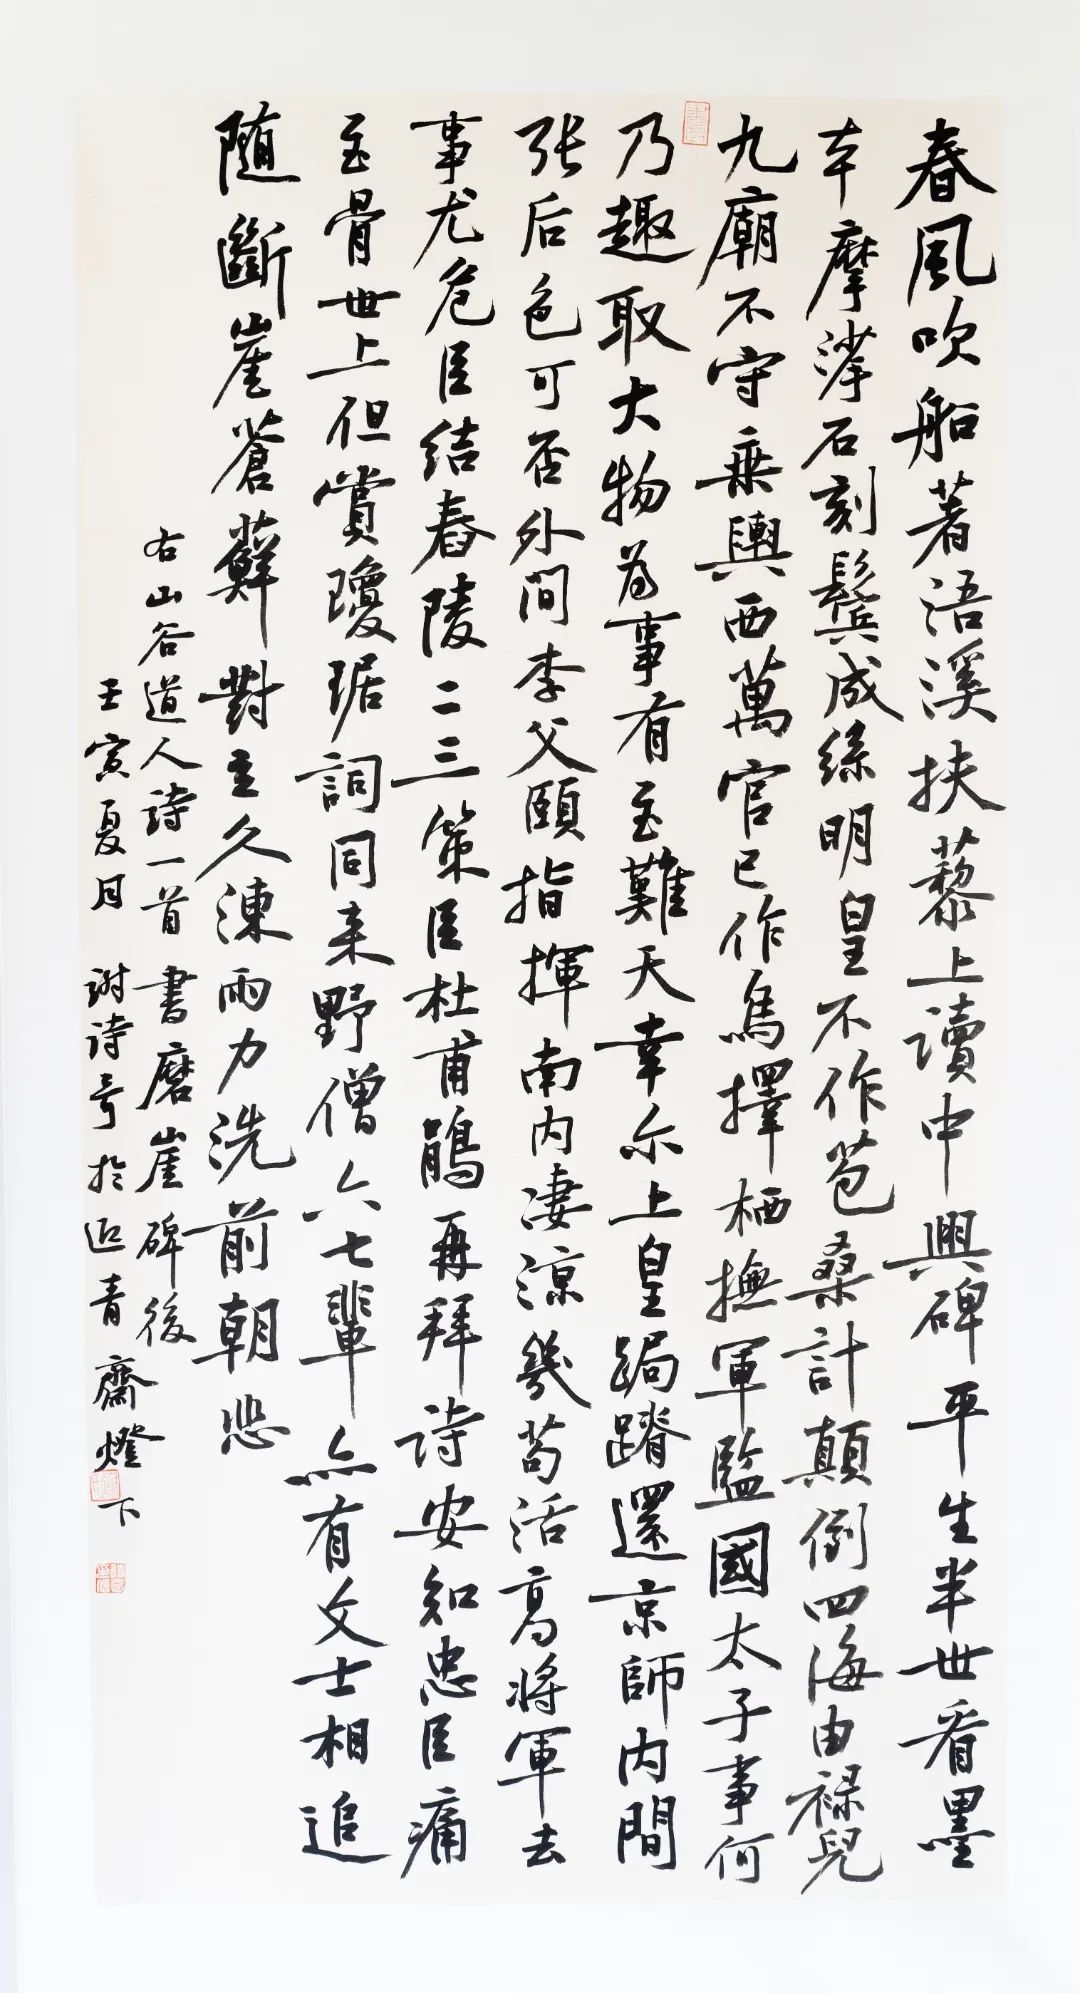 春風吹船著浯溪扶藜上讀中興碑平生半世看墨
本摩挲石刻鬓成絲明皇不作苞桑計顛倒四海由祿兒
九廟不守乗輿西萬官已作烏擇栖撫軍監國太子事何
乃趣取大物為事有至難天幸尔上皇跼蹐還京師内間
张后色可否外間李父頤指揮南内凄凉幾苟活高将軍去
事尤危臣结舂陵二三策臣杜甫鵑再拜詩安知忠臣痛
至骨世上但賞瓊琚詞同来野僧六七輩亦有文士相追
随斷崖蒼蘚對立久涷雨为洗前朝悲
右山谷道人詩一首書磨崖碑後
壬寅夏月謝詩於青齋燈下